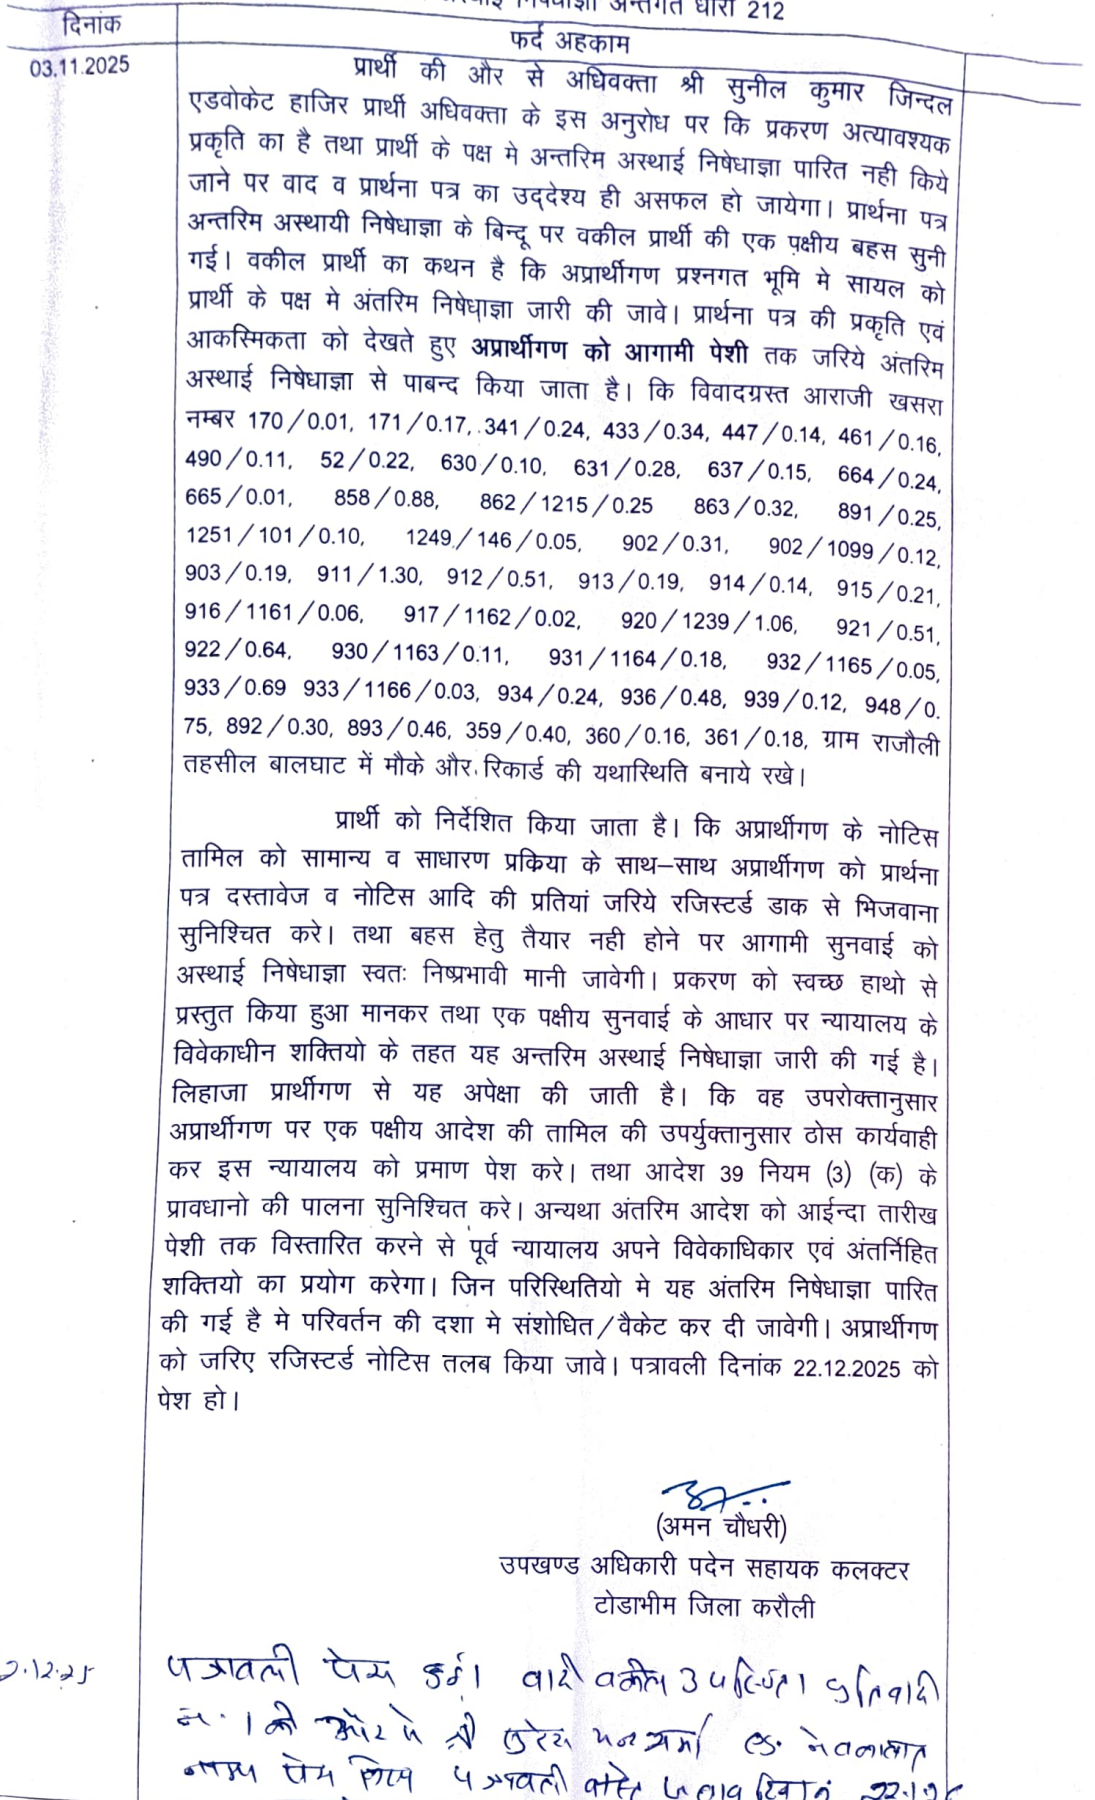 अन्तर्गत धारा 212
दिनांक
फर्द अहकाम
03.11.2025
प्रार्थी की और से अधिवक्ता श्री सुनील कुमार जिन्दल
एडवोकेट हाजिर प्रार्थी अधिवक्ता के इस अनुरोध पर कि प्रकरण अत्यावश्यक
प्रकृति का है तथा प्रार्थी के पक्ष मे अन्तरिम अस्थाई निषेधाज्ञा पारित नही किये
जाने पर वाद व प्रार्थना पत्र का उद्‌देश्य ही असफल हो जायेगा। प्रार्थना पत्र
अन्तरिम अस्थायी निषेधाज्ञा के बिन्दू पर वकील प्रार्थी की एक पक्षीय बहस सुनी
गई। वकील प्रार्थी का कथन है कि अप्रार्थीगण प्रश्नगत भूमि मे सायल को
प्रार्थी के पक्ष मे अंतरिम निषेधाज्ञा जारी की जावे। प्रार्थना पत्र की प्रकृति एवं
आकस्मिकता को देखते हुए अप्रार्थीगण को आगामी पेशी तक जरिये अंतरिम
अस्थाई निषेधाज्ञा से पाबन्द किया जाता है। कि विवादग्रस्त आराजी खसरा
नम्बर 170/0.01, 171/0.17, 341/0.24, 433/0.34, 447/0.14, 461/0.16,
490/0.11, 52/0.22, 630/0.10, 631/0.28, 637/0.15, 664/0.24,
665/0.01, 858/0.88, 862/1215/0.25 863/0.32, 891/0.25,
1251/101/0.10, 1249/146/0.05, 902/0.31, 902/1099/0.12,
903/0.19, 911/1.30, 912/0.51, 913/0.19, 914/0.14, 915/0.21,
916/1161/0.06, 917/1162/0.02, 920/1239/1.06, 921/0.51,
922/0.64, 930/1163/0.11, 931/1164/0.18, 932/1165/0.05,
933/0.69 933/1166/0.03, 934/0.24, 936/0.48, 939/0.12, 948/0.
75, 892/0.30, 893/0.46, 359/0.40, 360/0.16, 361/0.18, ग्राम राजौली
तहसील बालघाट में मौके और रिकार्ड की यथास्थिति बनाये रखे।
प्रार्थी को निर्देशित किया जाता है। कि अप्रार्थीगण के नोटिस
तामिल को सामान्य व साधारण प्रकिया के साथ–साथ अप्रार्थीगण को प्रार्थना
पत्र दस्तावेज व नोटिस आदि की प्रतियां जरिये रजिस्टर्ड डाक से भिजवाना
सुनिश्चित करे। तथा बहस हेतु तैयार नही होने पर आगामी सुनवाई को
अस्थाई निषेधाज्ञा स्वतः निष्प्रभावी मानी जावेगी। प्रकरण को स्वच्छ हाथो से
प्रस्तुत किया हुआ मानकर तथा एक पक्षीय सुनवाई के आधार पर न्यायालय के
विवेकाधीन शक्तियो के तहत यह अन्तरिम अस्थाई निषेधाज्ञा जारी की गई है।
लिहाजा प्रार्थीगण से यह अपेक्षा की जाती है। कि वह उपरोक्तानुसार
अप्रार्थीगण पर एक पक्षीय आदेश की तामिल की उपर्युक्तानुसार ठोस कार्यवाही
कर इस न्यायालय को प्रमाण पेश करे। तथा आदेश 39 नियम (3) (क) के
प्रावधानो की पालना सुनिश्चित करे। अन्यथा अंतरिम आदेश को आईन्दा तारीख
पेशी तक विस्तारित करने से पूर्व न्यायालय अपने विवेकाधिकार एवं अंतर्निहित
शक्तियो का प्रयोग करेगा। जिन परिस्थितियो मे यह अंतरिम निषेधाज्ञा पारित
की गई है मे परिवर्तन की दशा मे संशोधित/वैकेट कर दी जावेगी। अप्रार्थीगण
को जरिए रजिस्टर्ड नोटिस तलब किया जावे। पत्रावली दिनांक 22.12.2025 को
पेश हो।
(अमन चौधरी)
उपखण्ड अधिकारी पदेन सहायक कलक्टर
टोडाभीम जिला करौली
2.12.25
पत्रावली पेश हुई। वादी वकील उपस्थित। प्रतिवादी
न. 1 की और से श्री
पत्रावली